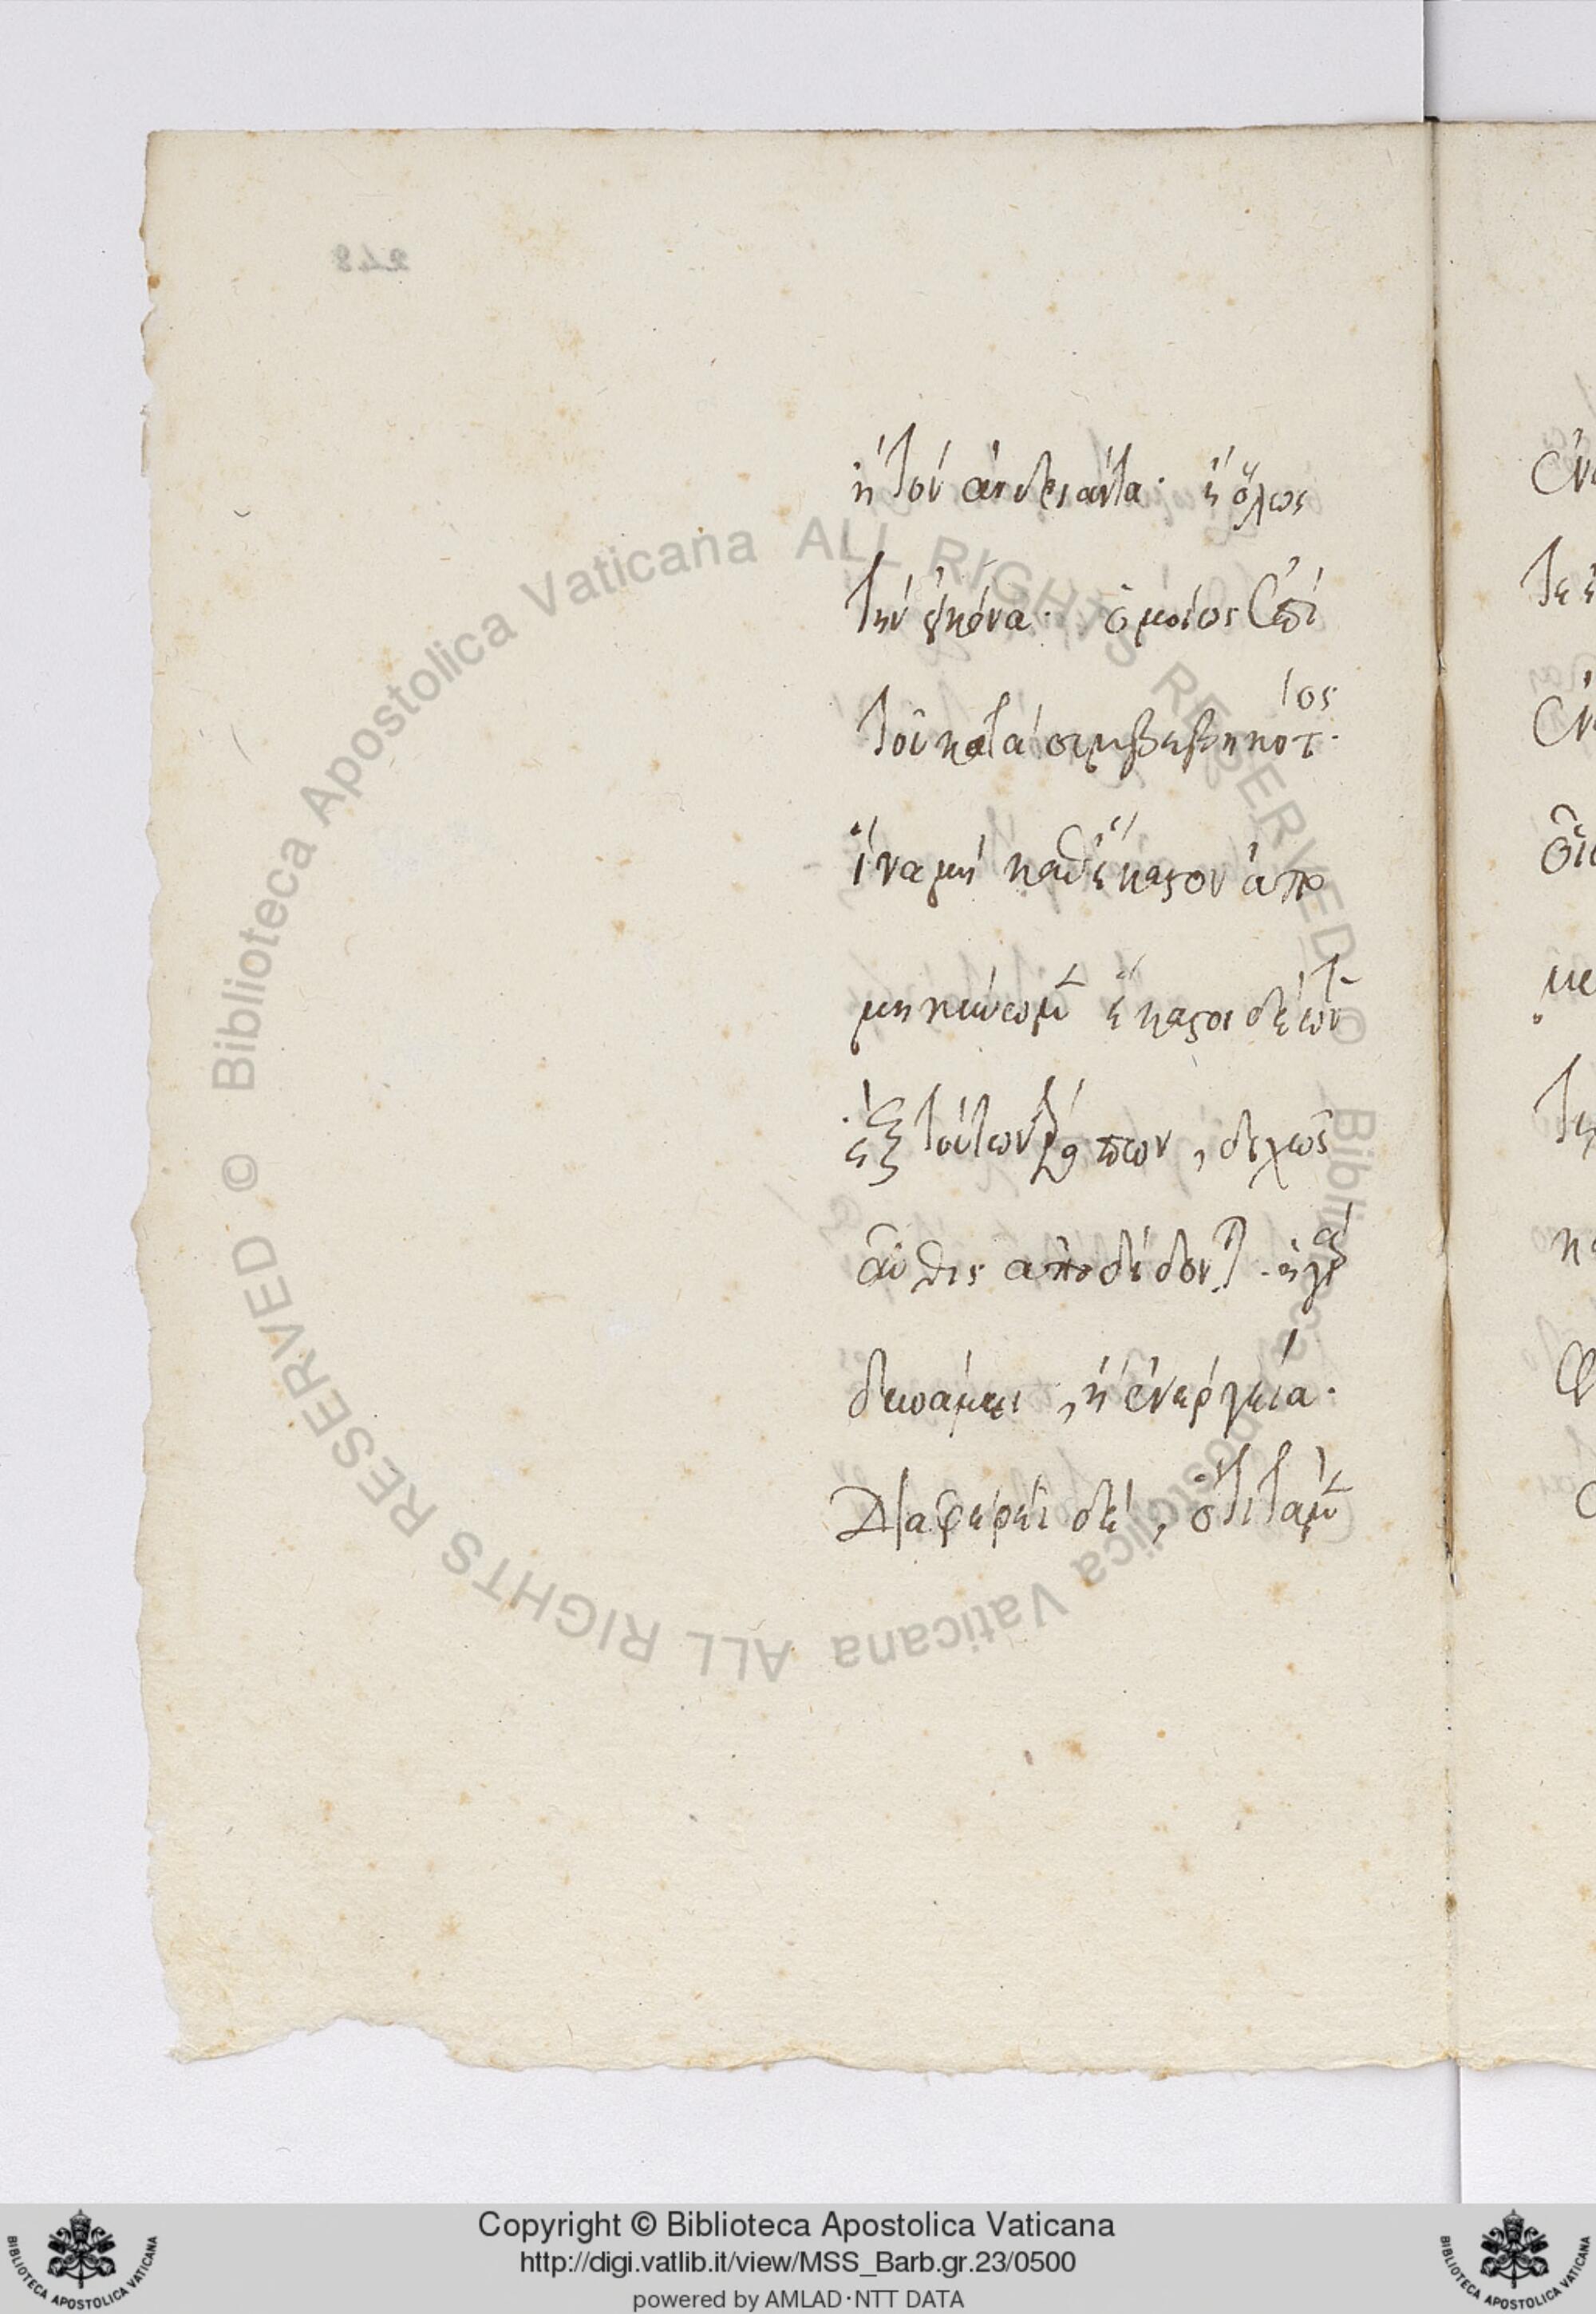 248
ἢ τὸν ἀνδριάντα· ἢ ὅλως
τὴν εἰκόνα· ὁμοίως ἐπὶ
τοῦ κατὰ συμβεβηκότος·
ἵνα μὴ καθ' ἕκαστον ἀπο
μηκύνωμεν ἕκαστοι δὲ τῶν
ἐξ τούτων τρόπων, διχῶς
αὖθις ἀποδίδονται· ἢ γὰρ
δυνάμει, ἢ ἐνεργείᾳ·
Διαφέρει δέ, ὅτι τὰ μὲν
© Biblioteca Apostolica Vaticana ALL RIGHTS RESERVED © Biblioteca Apostolica Vaticana ALL RIGHTS RESERVED
Copyright © Biblioteca Apostolica Vaticana
http://digi.vatlib.it/view/MSS_Barb.gr.23/0500
powered by AMLAD·NTT DATA
BIBLIOTECA APOSTOLICA VATICANA
BIBLIOTECA APOSTOLICA VATICANA